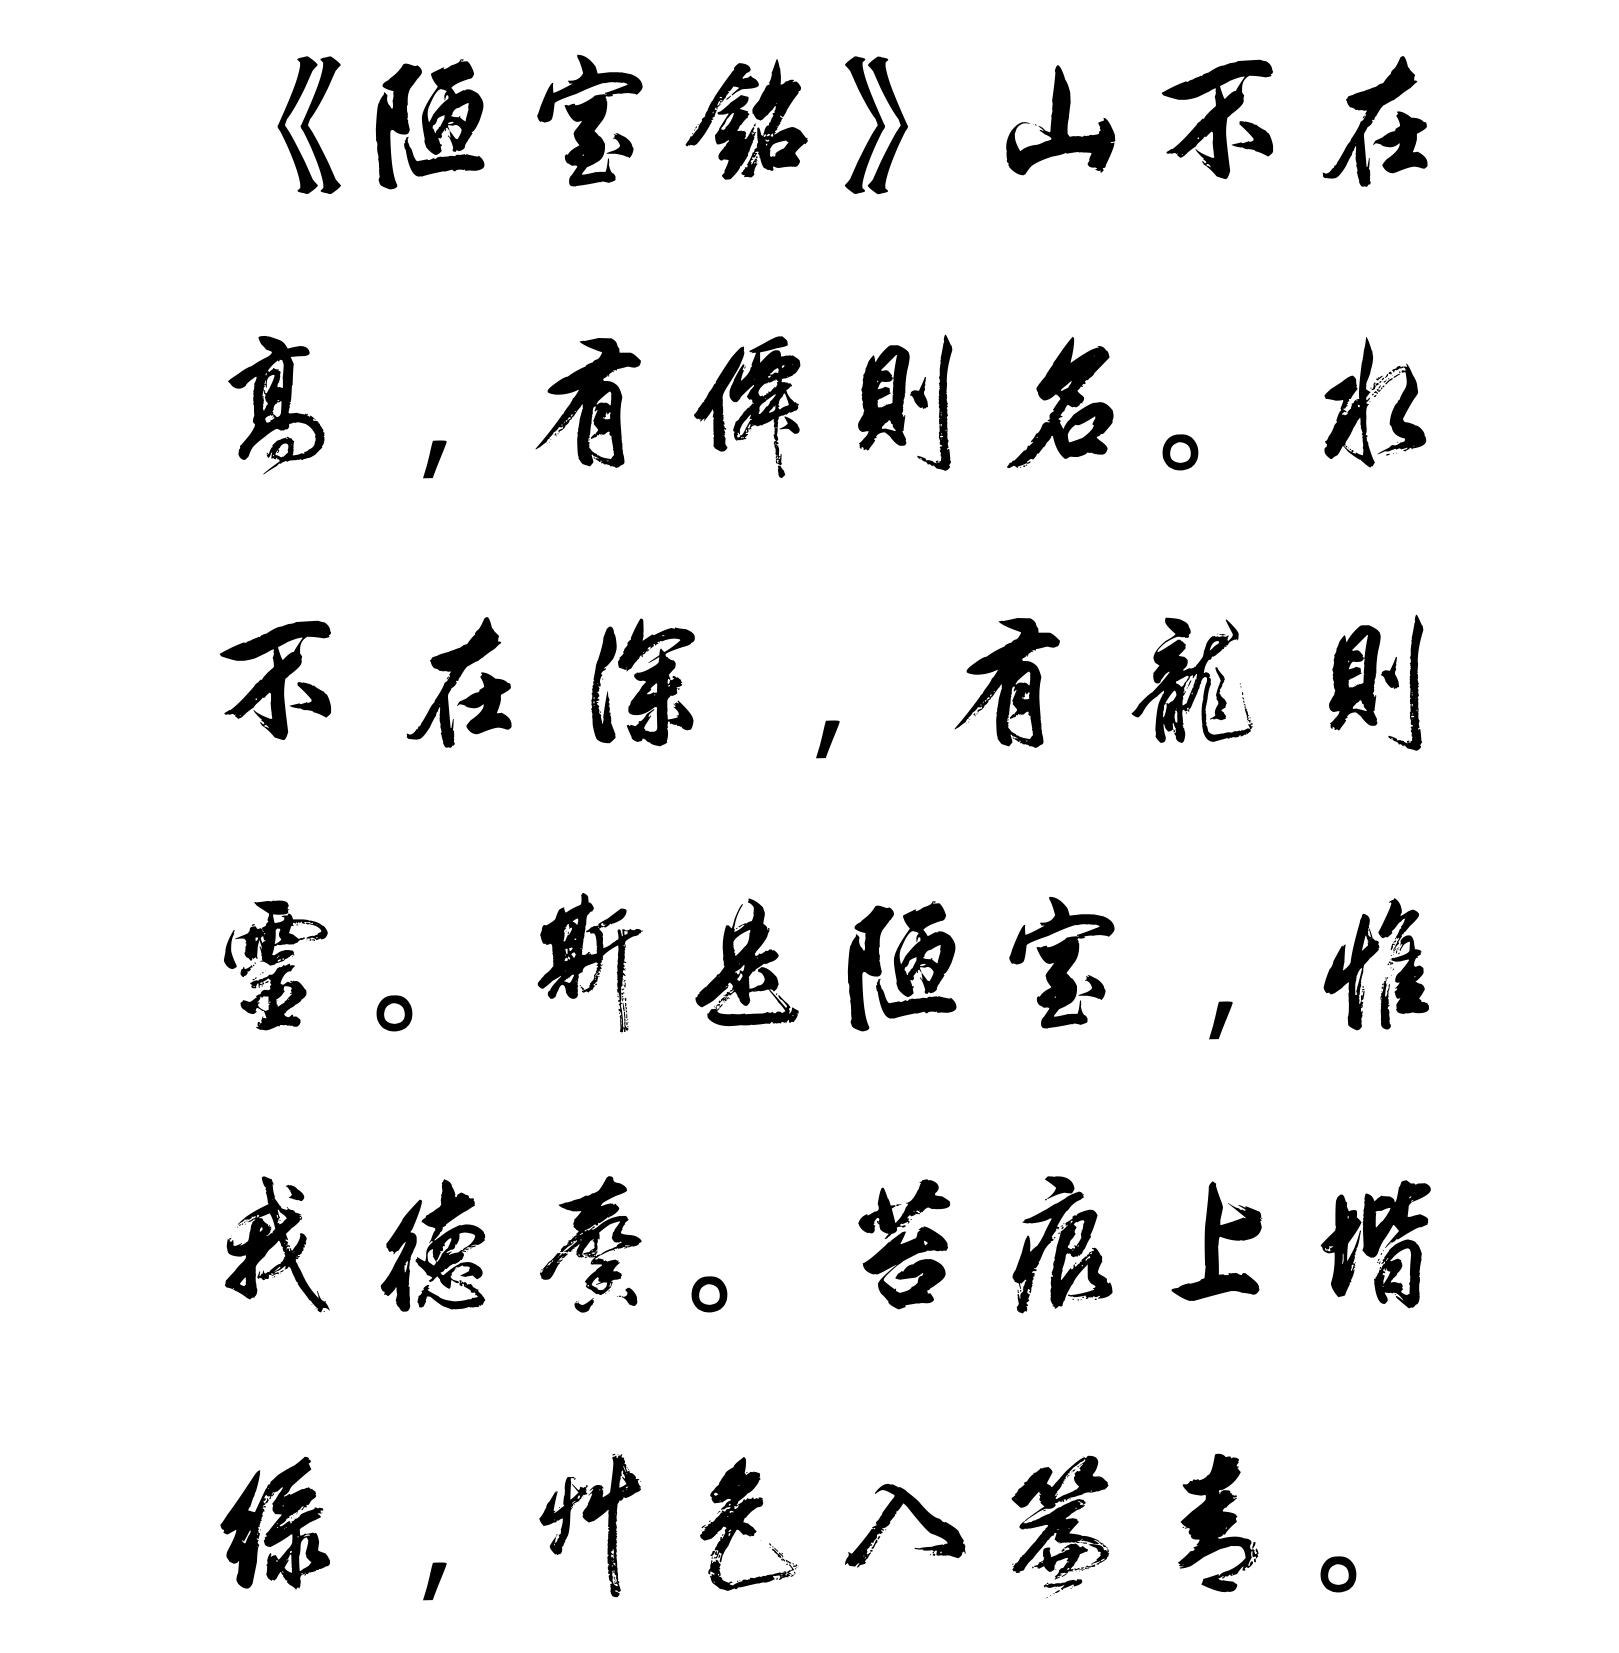 《陋室銘》山不在
高，有僊則名。水
不在深，有龍則
靈。斯是陋室，惟
我德馨。苔痕上堦
綠，艸色入簾青。